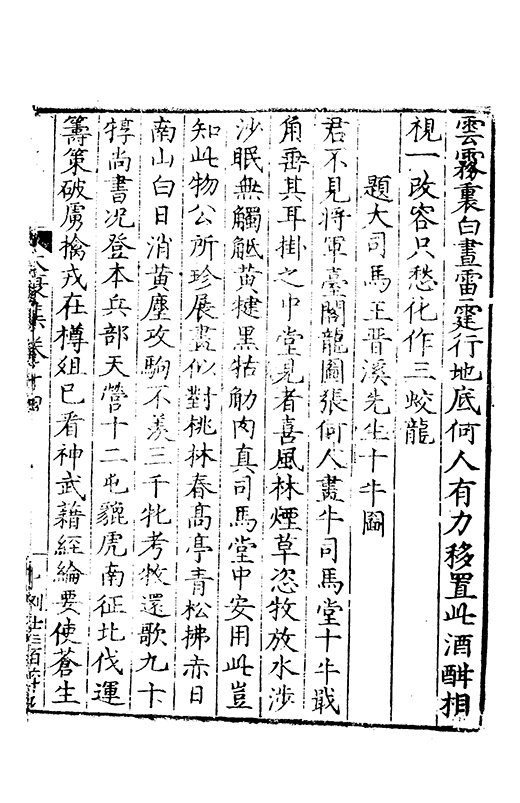 雲霧裏白晝雷霆行地底何人有力移置此酒酣相
視一改容只愁化作三蛟龍
題大司馬王晋溪先生十牛圖
君不見將軍臺閣龍圖張何人畫牛司馬堂十牛戢
角垂其耳掛之中堂見者喜風林煙草恣牧放水涉
沙眠無觸觝黃犍黑牯觔肉真司馬堂中安用此豈
知此物公所珍展畫似對桃林春髙亭青松拂赤日
南山白日消黃塵攻駒不羡三千牝考牧還歌九十
犉尚書况登本兵部天營十二屯貔虎南征北伐運
籌策破虜擒戎在樽俎已看神武藉經綸要使蒼生
卷十四